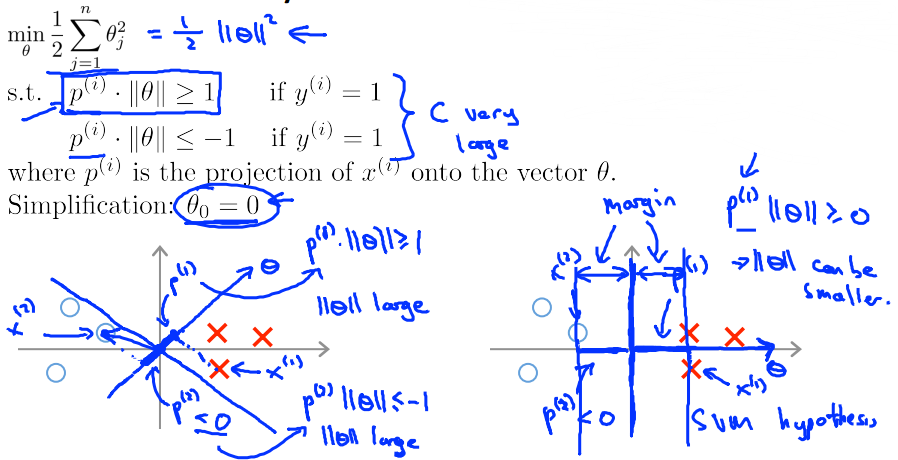 min_θ 1/2 Σ_{j=1}^{n} θ_j^2 = 1/2 ||θ||^2 ←
s.t. p^{(i)} · ‖θ‖ ≥ 1 if y^{(i)} = 1
p^{(i)} · ‖θ‖ ≤ −1 if y^{(i)} = 1
C very
large
where p^{(i)} is the projection of x^{(i)} onto the vector θ.
Simplification: θ_0 = 0
p^{(1)} · ||θ|| ≥ 1
θ
p^{(1)}
||θ|| large
x^{(2)}
x^{(1)}
p^{(2)} < 0
p^{(2)} ||θ|| ≤ -1
||θ|| large
margin
p^{(1)} ||θ|| ≥ 0
→ ||θ|| can be
smaller.
x^{(2)}
p^{(1)}
θ
x^{(1)}
p^{(2)} < 0
SVM hypothesis